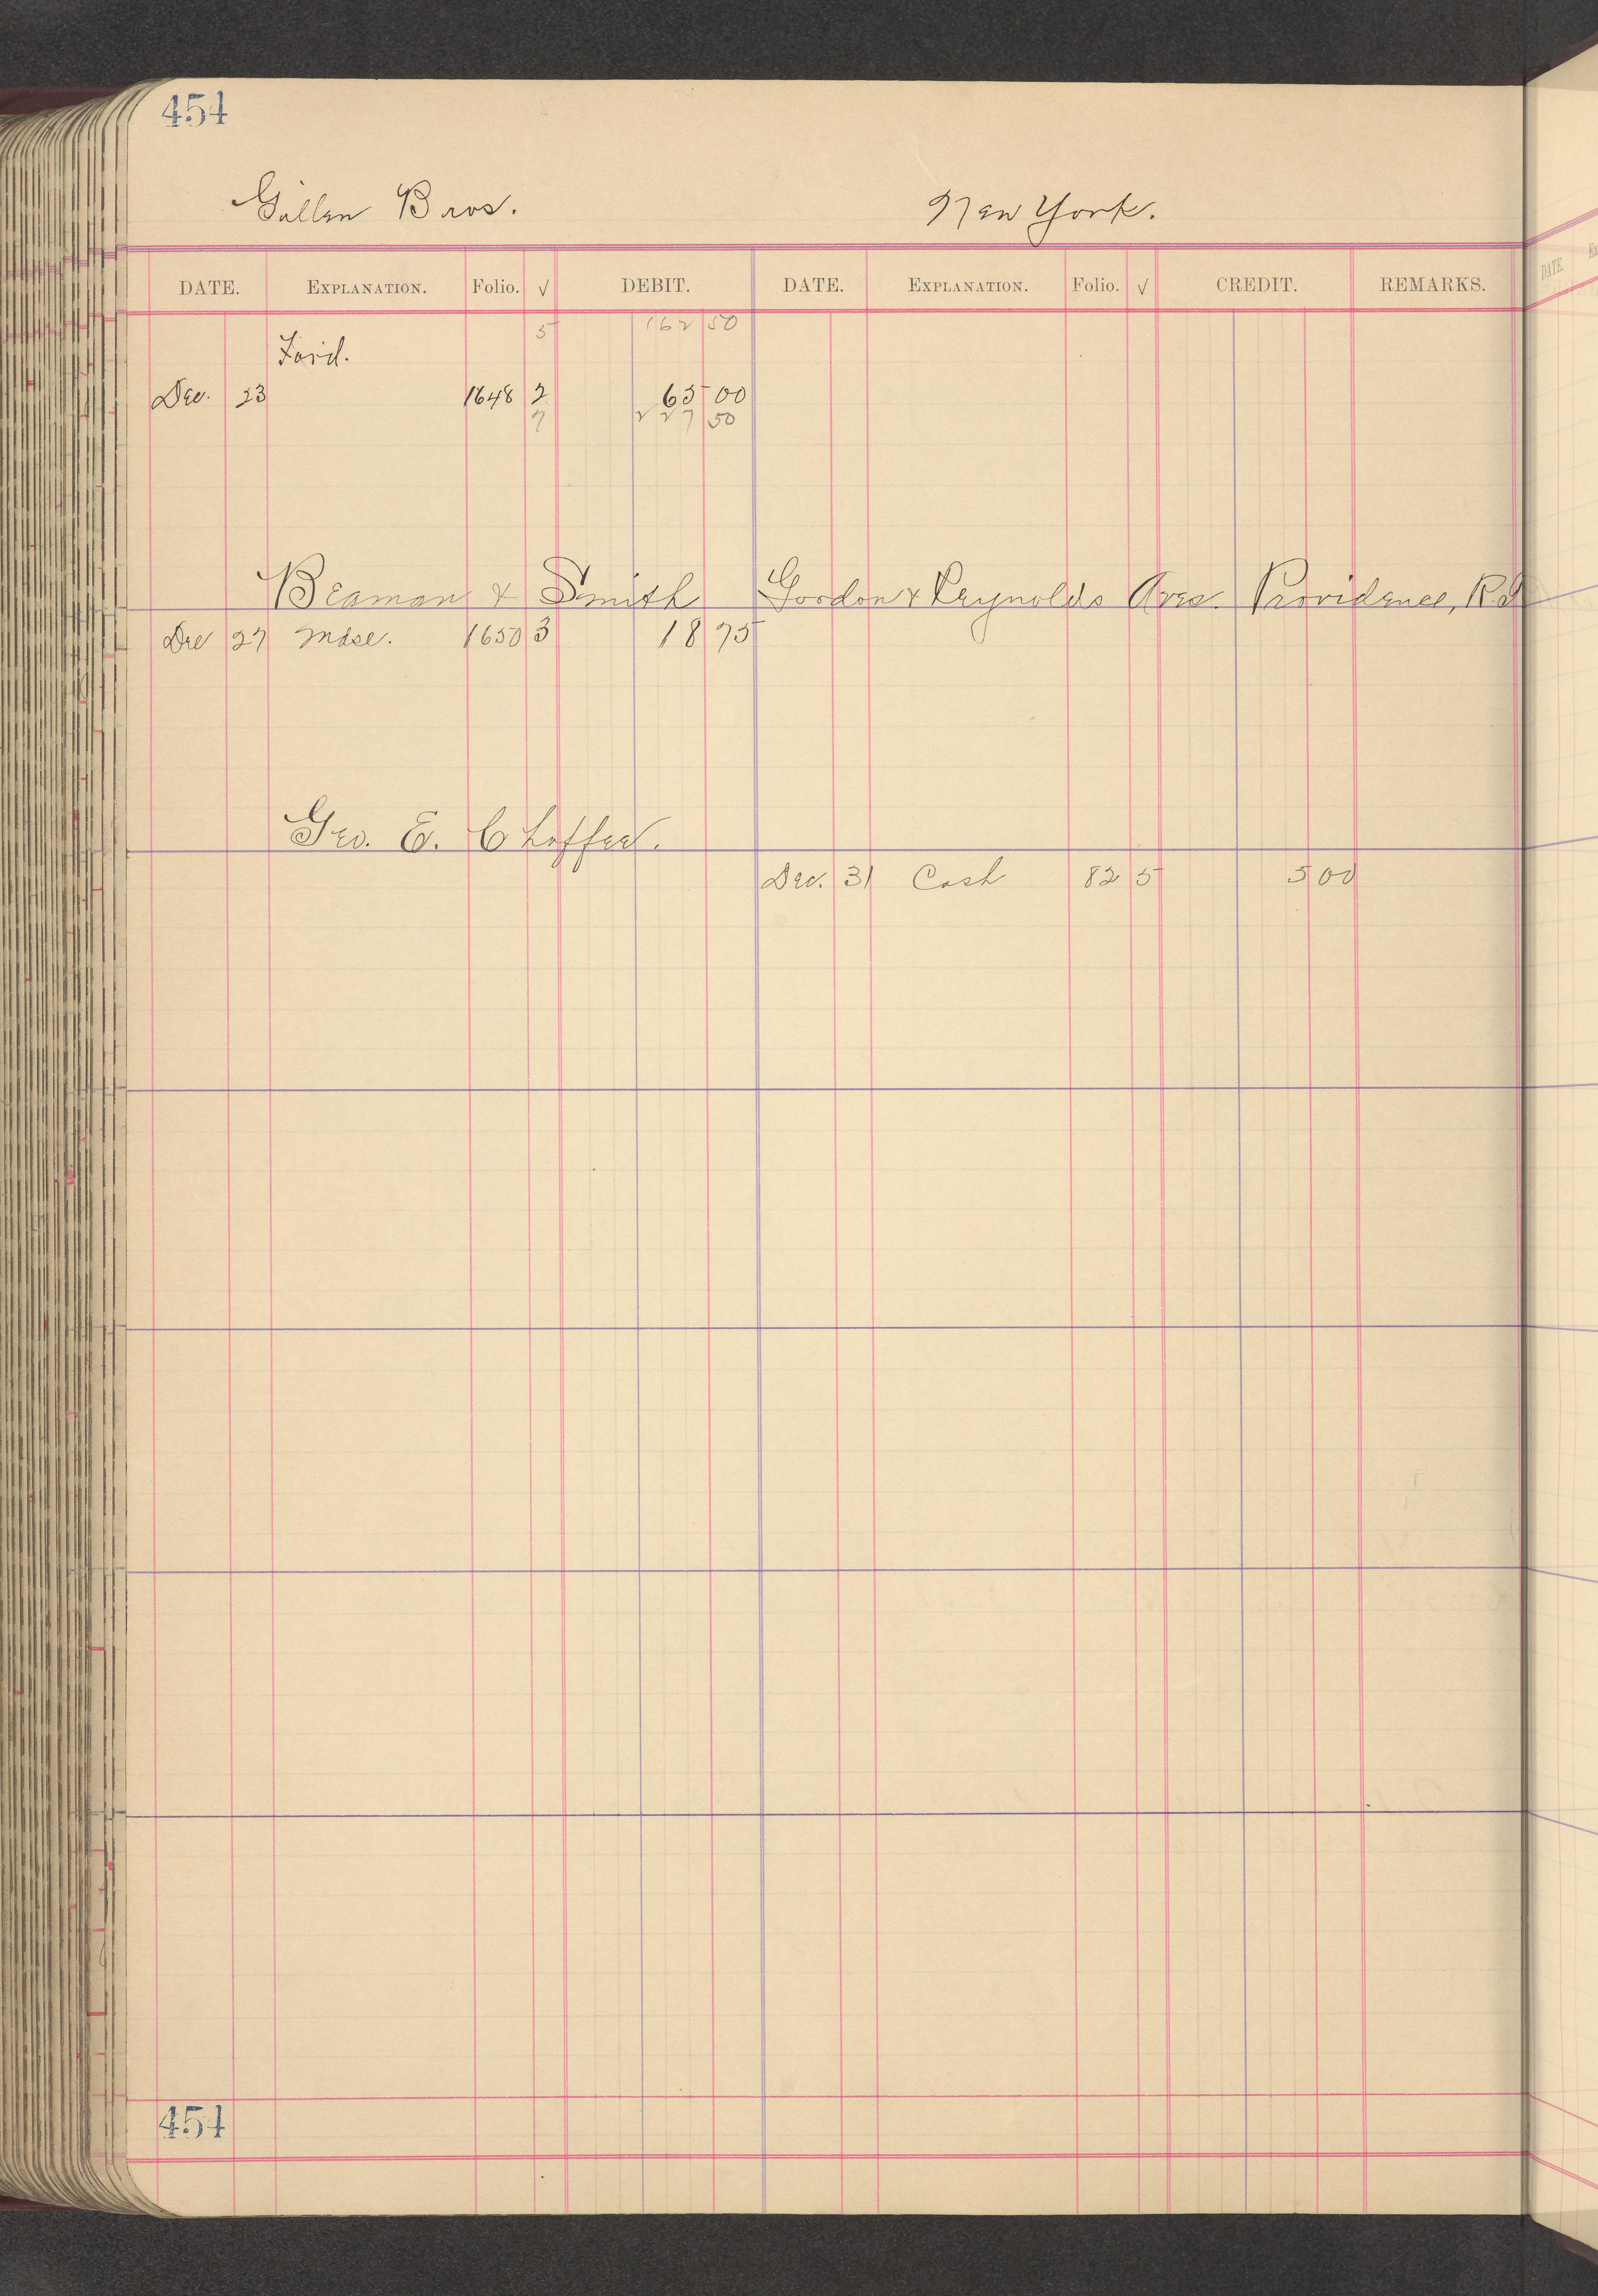 454
Gillen Bros. New York.
DATE. EXPLANATION. Folio. √ DEBIT. DATE. EXPLANATION. Folio. √ CREDIT. REMARKS.
5 162 50
Ford.
Dec. 23 1648 2 65 00
7 227 50
Beaman & Smith Gordon & Reynolds Aves. Providence, R.I
Dec 27 Mdse. 1650 3 18 75
Geo. E. Chaffee.
Dec. 31 Cash 82 5 5 00
454
DATE.